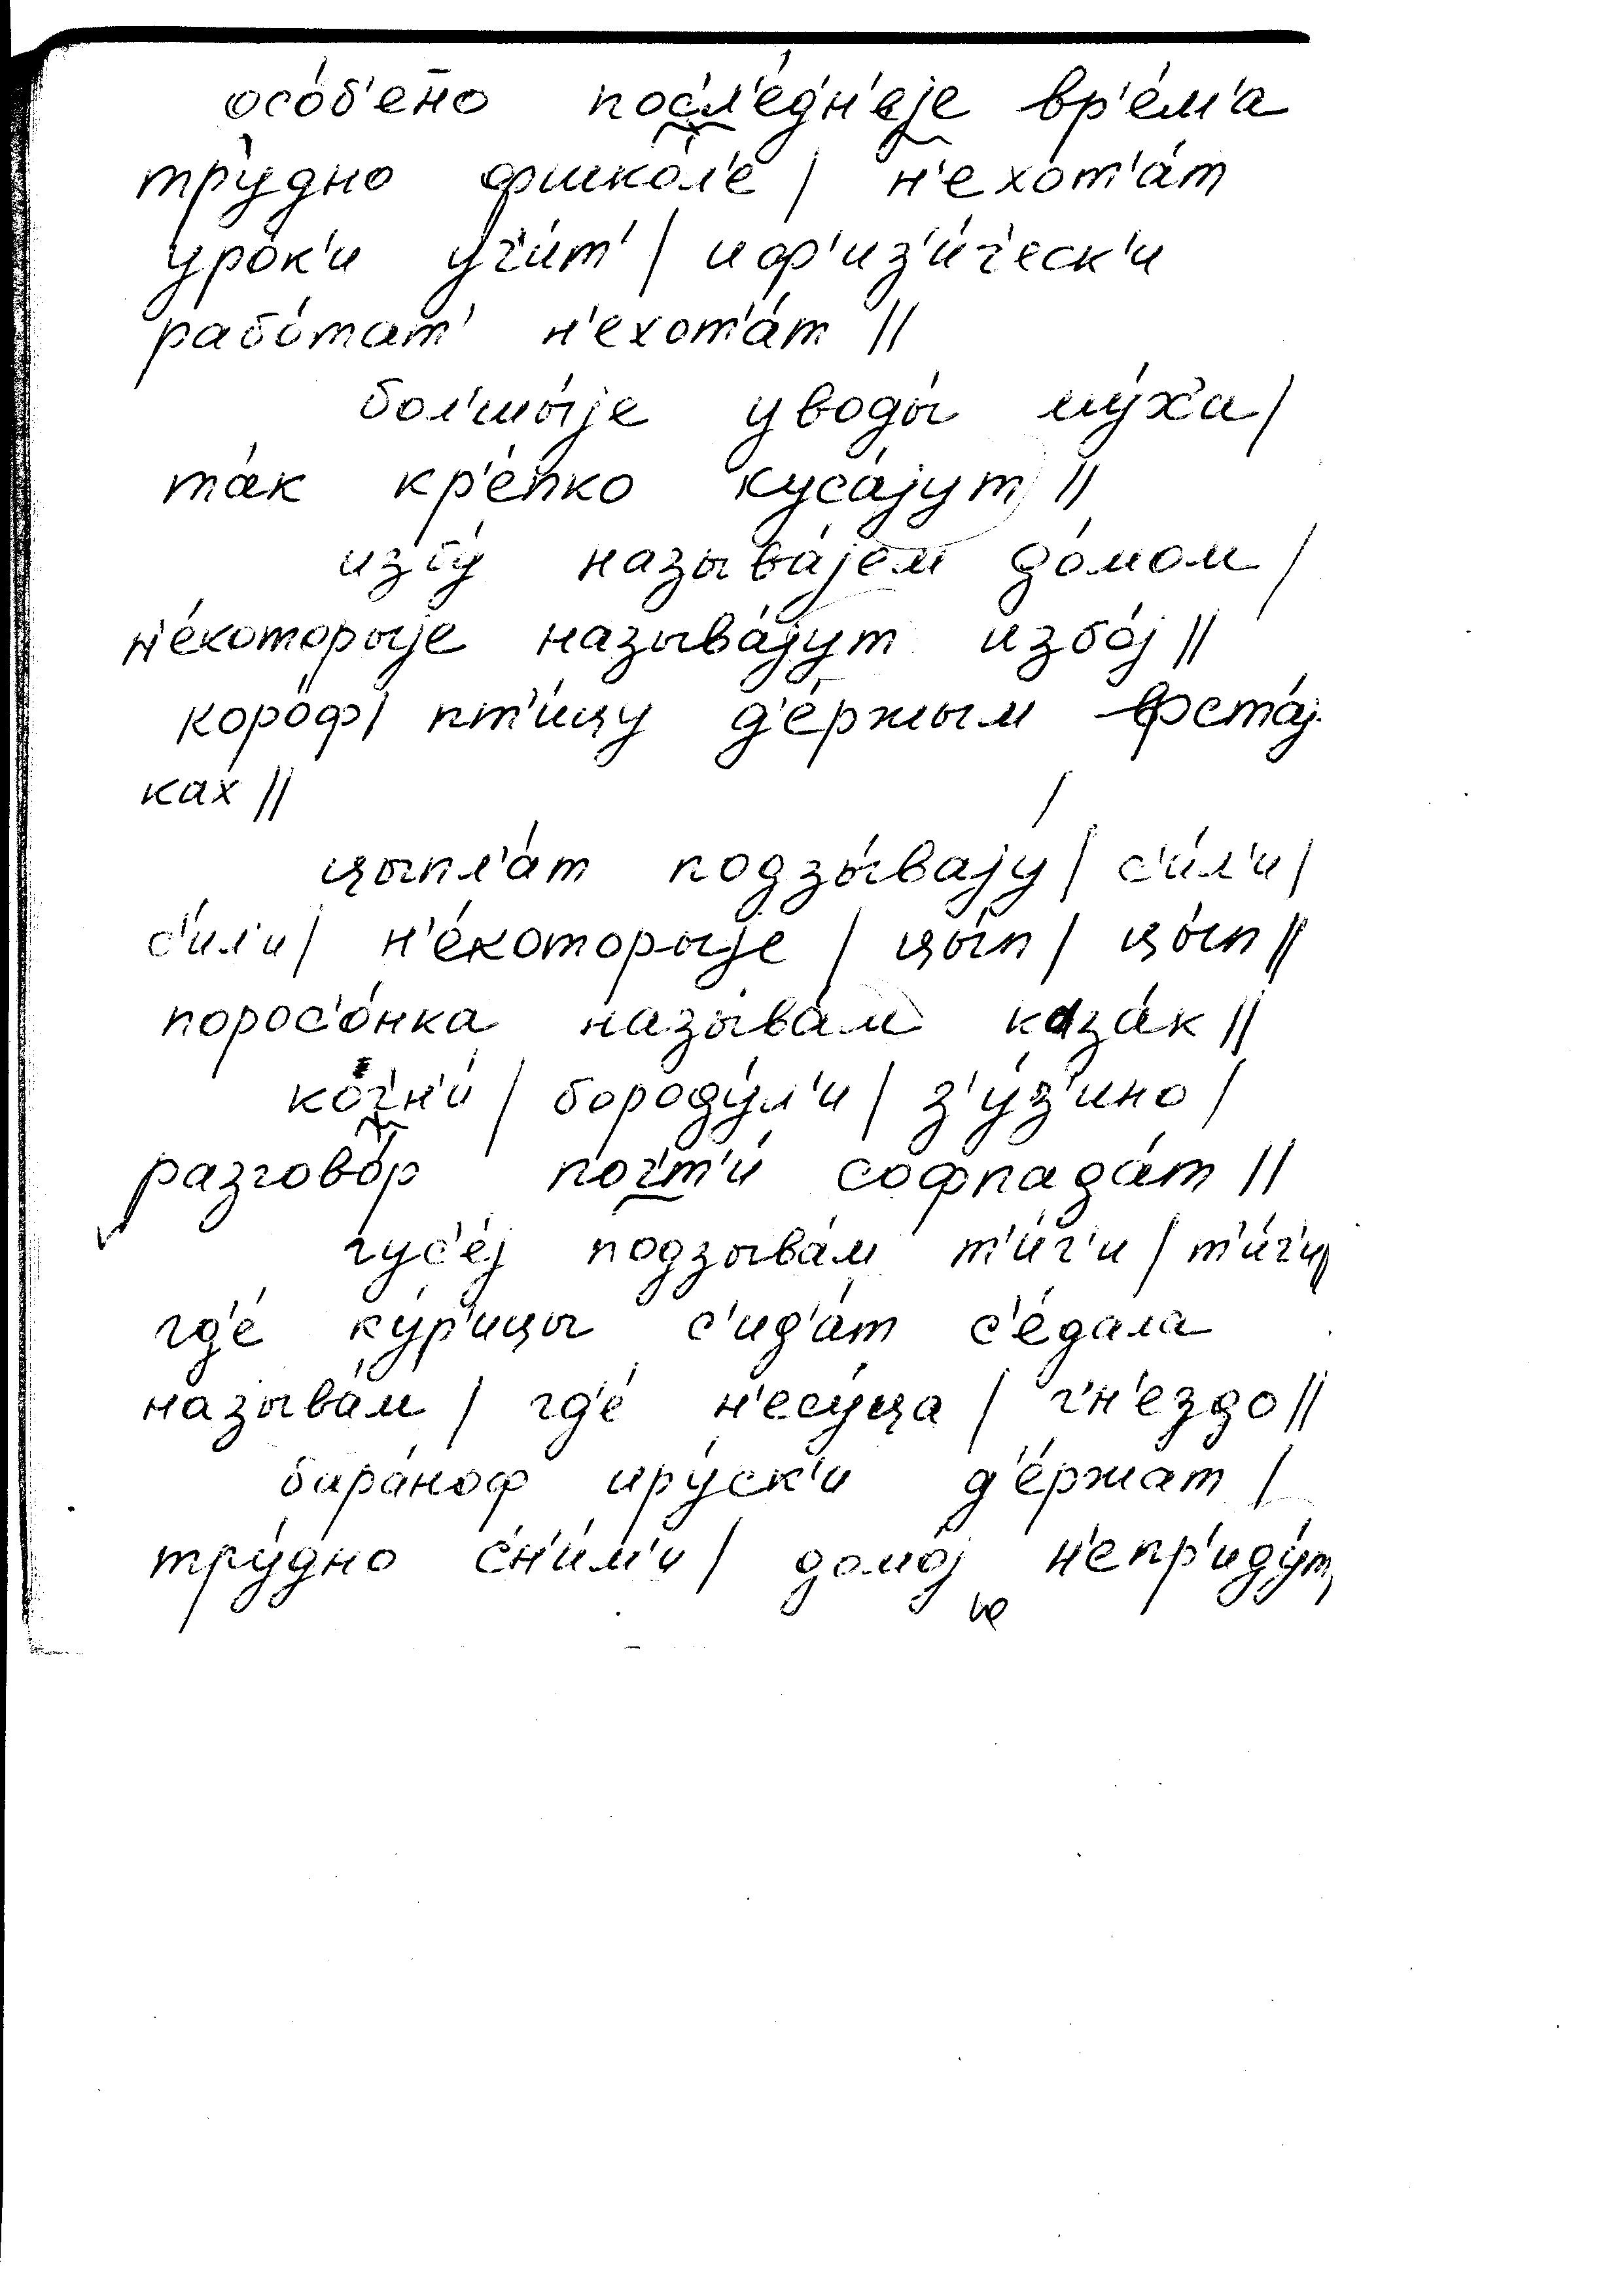 осо́б'ен̄о посл'е́дн'еjе вр'е́м'а
тру́дно фшко́л'е | н'ехот'а́т
уро́к'и уч'и́т' | иф'из'и́ч'еск'и
рабо́тат' н'ехот'а́т ||
бол'шы́jе уводы́ му́х'и |
та́к кр'е́пко куса́jут ||
избу́ называ́jем до́мом |
н'е́которыjе называ́jут избо́j ||
коро́ф | пт'и́цу д'е́ржым фста́j-
ках ||
цыпл'а́т подзы́ваjу | с'и́л'и |
с'и́л'и | н'е́которыjе | цы́п | цы́п ||
порос'о́нка называ́м каза́к ||
коч'н'и́ | бороду́л'и | з'у́з'ино |
разгово́р поч'т'и́ софпада́т ||
гус'е́j подзыва́м т'и́г'и | т'и́г'и |
гд'е́ ку́р'ицы с'ид'а́т с'е́дала
называ́м | гд'е́ н'есу́ца | г'н'ездо ||
бара́ноф иру́ск'и д'е́ржат |
тру́дно с'н'и́м'и | домо́j н'епр'иду́т,